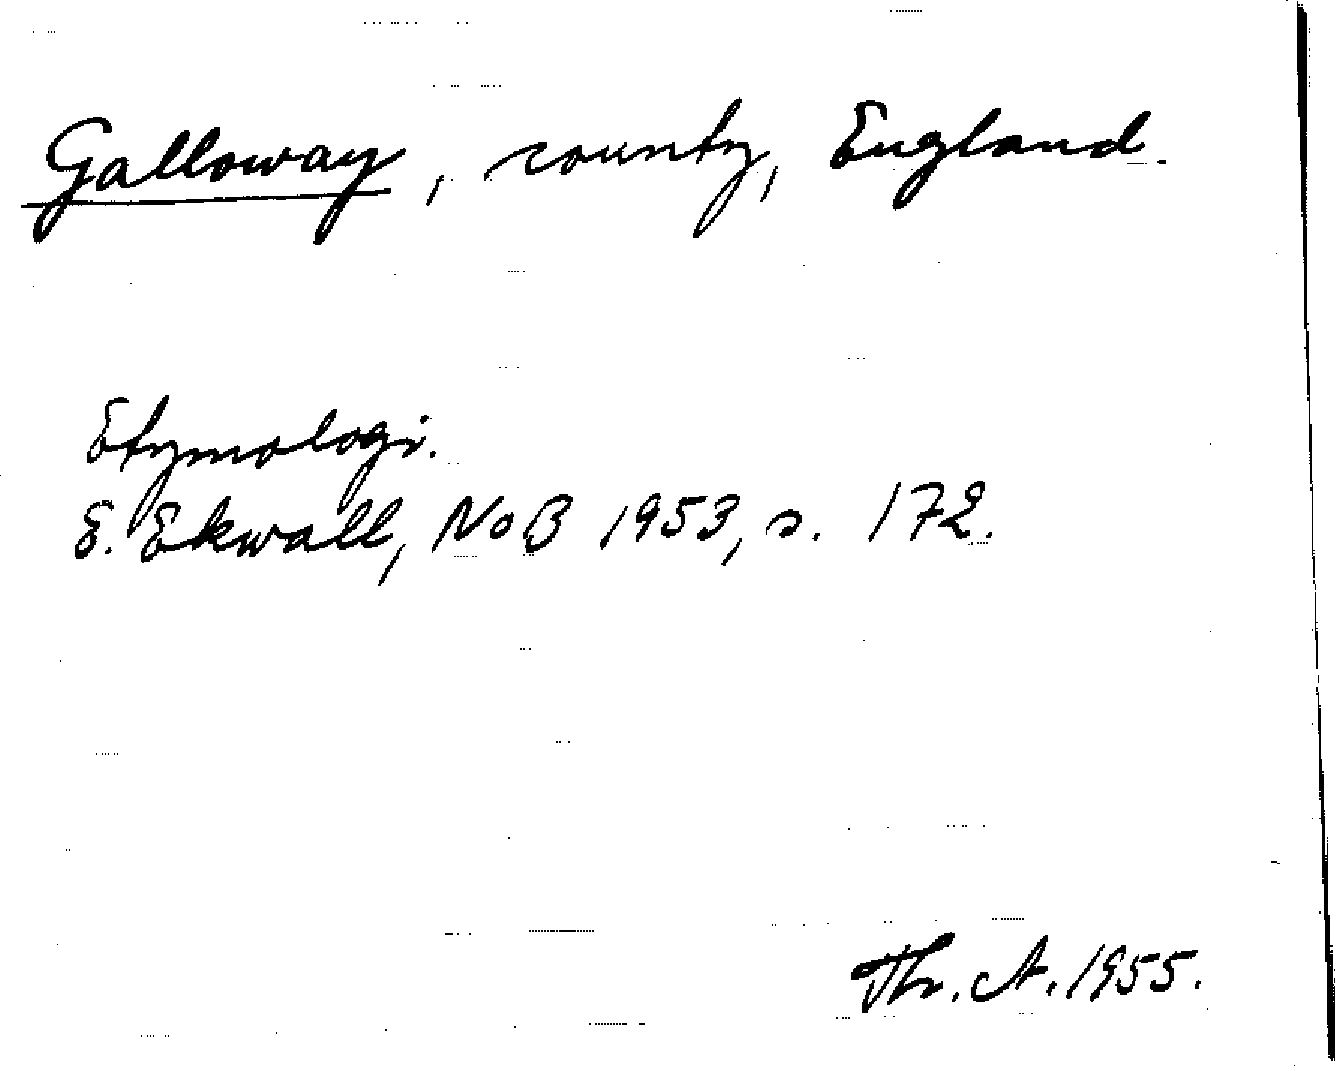 Galloway, county, England.
Etymologi.
E. Ekwall, NoB 1953, s. 172.
Thr. A. 1955.